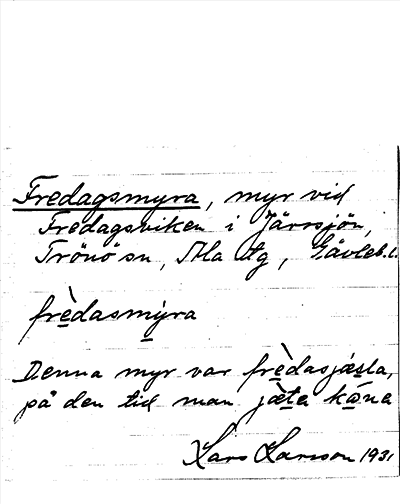 Fredagsmyra, myr vid
Fredagsviken i Järvsjön,
Trönö sn, Ala tg, Gävleb.l.
frèdasmýra
Denna myr var frèdasjæsla,
på den tid man jæta ká̱na
Lars Larsson 1931